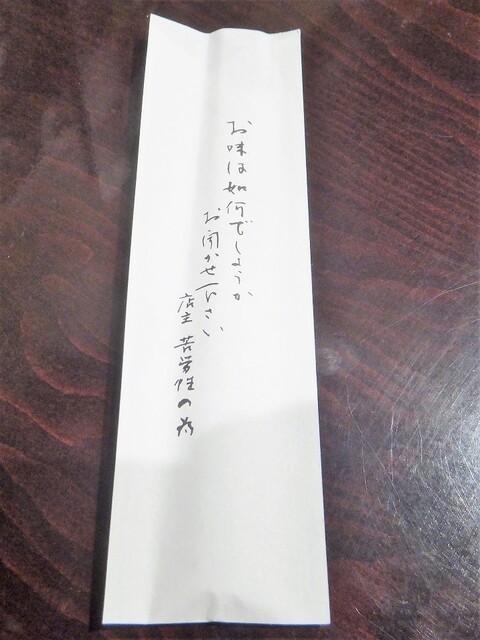 お味は如何でしょうか
お聞かせ下さい
店主 苦労性の為